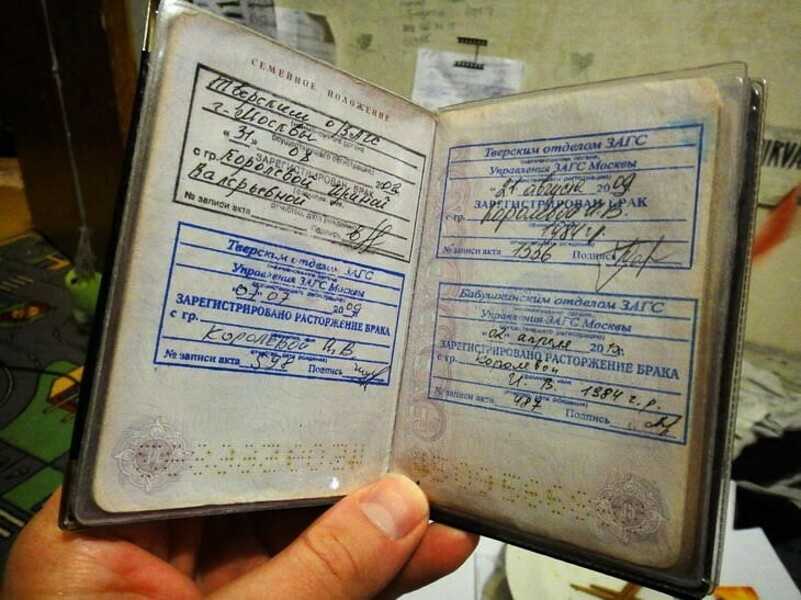 СЕМЕЙНОЕ ПОЛОЖЕНИЕ
Тверским о/ЗАГС
г. Москвы
"31" 08
ЗАРЕГИСТРИРОВАН БРАК
с гр. Королевой Ириной
Валерьевной
№ записи акта
Подпись
Тверским отделом ЗАГС
Управления ЗАГС Москвы
07 2009
ЗАРЕГИСТРИРОВАНО РАСТОРЖЕНИЕ БРАКА
с гр. Королевой И.В.
№ записи акта 598 Подпись
Тверским отделом ЗАГС
Управления ЗАГС Москвы
"21 августа 2009
ЗАРЕГИСТРИРОВАН БРАК
с гр. Королевой И.В.
1984 г.р.
№ записи акта 1556 Подпись
Бабушкинским отделом ЗАГС
Управления ЗАГС Москвы
"02" апреля
ЗАРЕГИСТРИРОВАНО РАСТОРЖЕНИЕ БРАКА
с гр. Королевой
И. В. 1984 г.р.
№ записи акта 487 Подпись